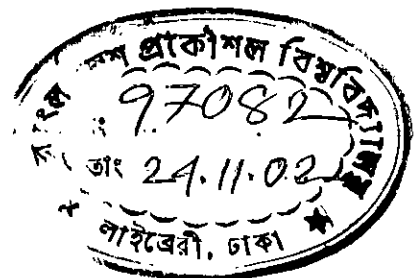 প্রকৌশল বিশ্ববিদ্যালয়
97082
তাং 24.11.02
লাইব্রেরী, ঢাকা